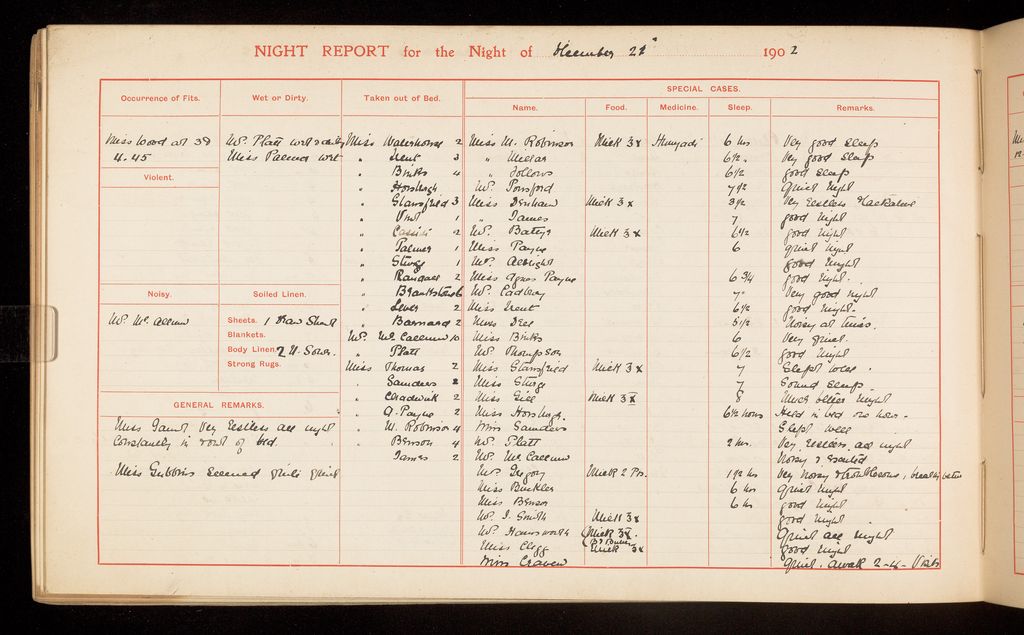 NIGHT REPORT for the Night of December 190 2
SPECIAL CASES.
Occurrence of Fits. Wet or Dirty. Taken out of Bed. Name. Food. Medicine. Sleep. Remarks.
Miss Wood at
4.45
Violent.
Noisy.
Mr. McCallum
Mr. Platt wet
Miss Palmer wet
Soiled Linen.
Sheets. 1 Draw Sheet
Blankets.
Body Linen. 2 N.
Strong Rugs.
GENERAL REMARKS.
Miss Gaunt Very Restless all night
Constantly in & out of bed.
Miss Gubbins seemed quite quiet
Miss Waterhouse 2
" Trent 3
" Binks 4
" Horsburgh
" Glansfield 3
" Vint 1
" 2
" Palmer 1
" Sturge 1
" Randall 2
" 6
" Lever 2
" Barnard 2
Mr. McCallum 10
" Platt
Miss Thomas 2
" Saunders 2
" Chadwick 2
" A. Payne 2
" M. Robinson 4
" Benson 4
James 2
Miss M. Robinson Milk 3x Hunyadi 6 hrs Very good sleep
" Mellar 6½ " Very good sleep
" Follows 6½ good sleep
Mr. Ponsford 7½ Quiet night
Miss Denham Milk 3x 3½ Very restless &
" James 7 good night
Mr. Milk 3x 6½ good night
Miss Payne 6 quiet night
Mr. Albright good night
Miss Agnes Payne 6¾ good night.
Mr. Cadbury 7 Very good night
Miss Trent 6½ good night.
Miss Dell 5½ Noisy at times.
Miss Binks 6 Very quiet.
Mr. Thompson 6½ good night
Miss Glansfield Milk 3x 7 Slept well.
Miss Sturge 7 Sound sleep.
Miss Gill Milk 3x 8 Much better night
Miss Horsburgh. 6½ hours Held in bed
Miss Saunders Slept well
Mr. Platt 2 hrs. Very restless all night
Mr. McCallum Noisy & excited
Mr. Gregory Milk 2 Pts. 1½ hrs Very noisy & troublesome,
Miss Buckler 6 hrs Quiet night
Miss Benson 6 hrs good night
Mr. J. Smith Milk 3x good night
Mr. Milk 3x. Quiet all night
Miss Clegg Milk 3x good night
Miss Craven Quiet. awake 2-4-